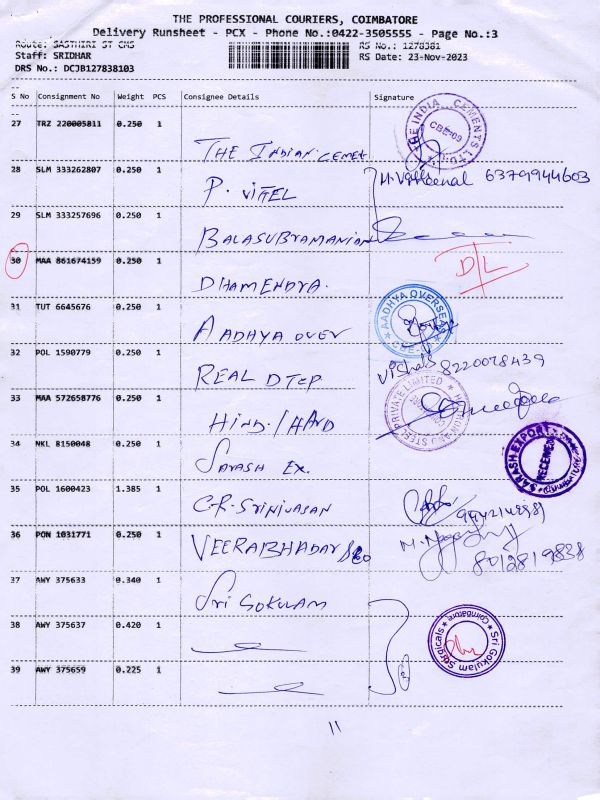 THE PROFESSIONAL COURIERS, COIMBATORE
Delivery Runsheet - PCX - Phone No.:0422-3505555 - Page No.:3
Route: SASTHIRI ST CMS RS No.: 1278381
Staff: SRIDHAR RS Date: 23-Nov-2023
DRS No.: DCJB127838103
S No Consignment No Weight PCS Consignee Details Signature
27 TRZ 220005811 0.250 1 THE INDIAN. CEMET THE INDIA CEMENTS LTD. CBE-09
28 SLM 333262807 0.250 1 P. VITTEL 6379944603
29 SLM 333257696 0.250 1 BALASUBRAMANIAN
30 MAA 861674159 0.250 1 DHAMENDRA. D/L
31 TUT 6645676 0.250 1 AADHYA OVER AADHYA OVERSEAS
32 POL 1590779 0.250 1 REAL DTEP 8220078439
33 MAA 572658776 0.250 1 HIND./HARD STEEL PRIVATE LIMITED
34 NKL 8150048 0.250 1 SARASH EX. SARASH EXPORT RECEIVED
35 POL 1600423 1.385 1 C.R. SRINIVASAN
36 PON 1031771 0.250 1 VEERABHADAR 8012819838
37 AWY 375633 0.340 1 SRI GOKULAM
38 AWY 375637 0.420 1 Sri Gokulam Surgicals Coimbatore
39 AWY 375659 0.225 1
11